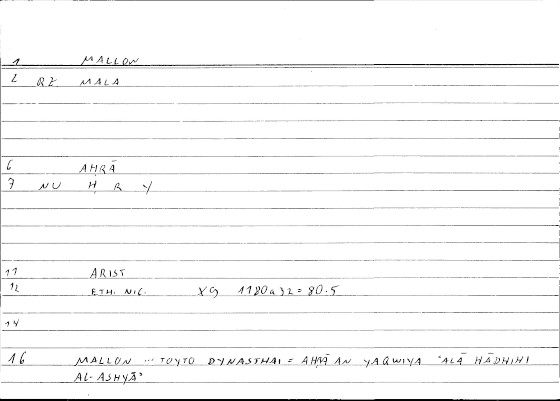 1 MALLON
2 QZ MALA
6 AḤRĀ
7 NU Ḥ R Y
11 ARIST
12 ETH. NIC. X9 1180a32 = 80.5
14
16 MALLON ... TOYTO DYNASTHAI = AḤRĀ AN YAQWIYA ʿALĀ HĀDHIHI
AL-ASHYĀʾ